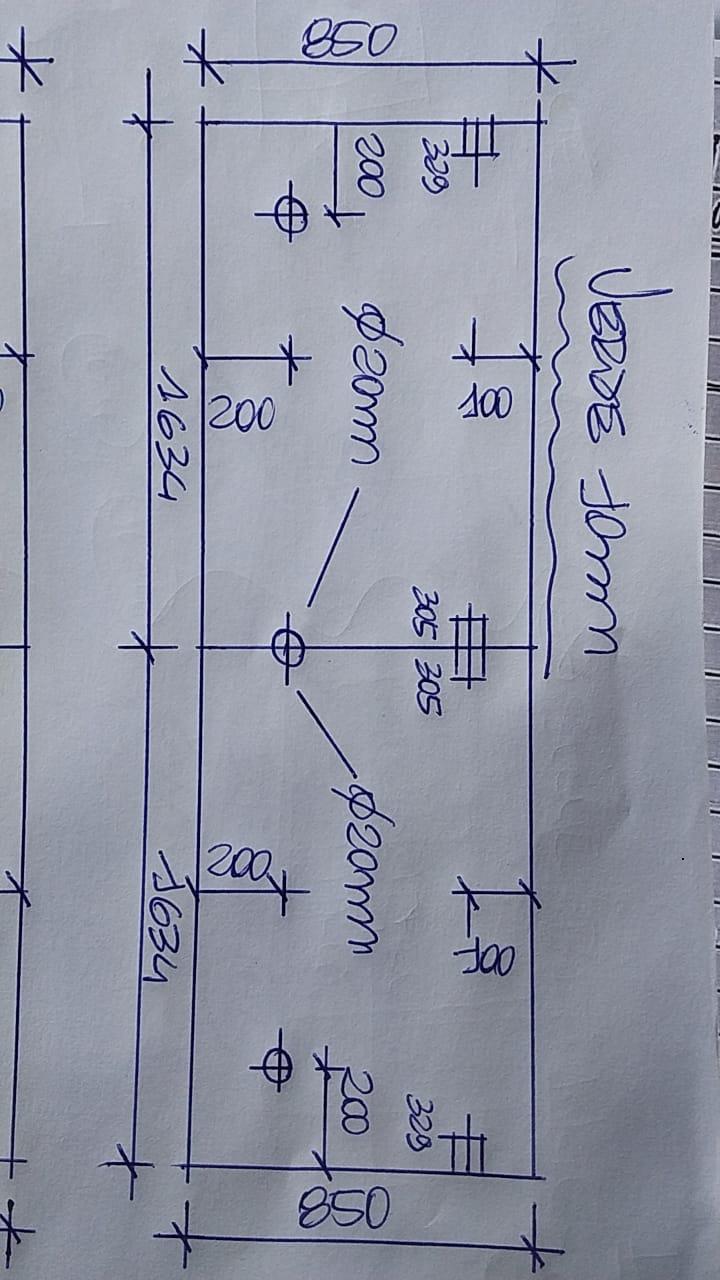 VERRE 10mm
100 100
329 305 305 329
850 200 φ20mm φ20mm 200 850
200 200
1634 1634